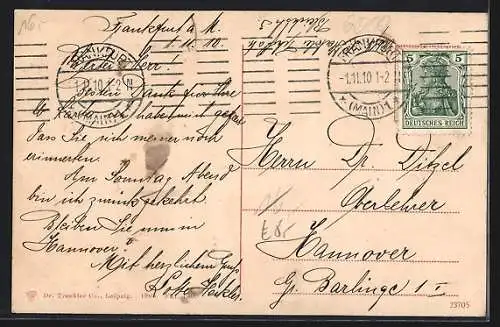 Frankfurt a. M.
1. 11. 10.
Werter Herr!
Besten Dank für Ihre
Karten, habe mich gefreut
Dass Sie sich meiner noch
erinnerten.
Am Sonntag Abend
bin ich zurückgekehrt
Bleiben Sie nun in
Hannover?
Mit herzlichem Gruß
Lotte
FRANKFURT
1-2 N
(MAIN)
FRANKFURT
-1.11.10 1-2
* (MAIN) 1
5 5
DEUTSCHES REICH
Herrn Dr. Ditzel
Oberlehrer
Hannover
Gr. Barlinge 1 I
Dr. Trenkler Co., Leipzig. 19
23705